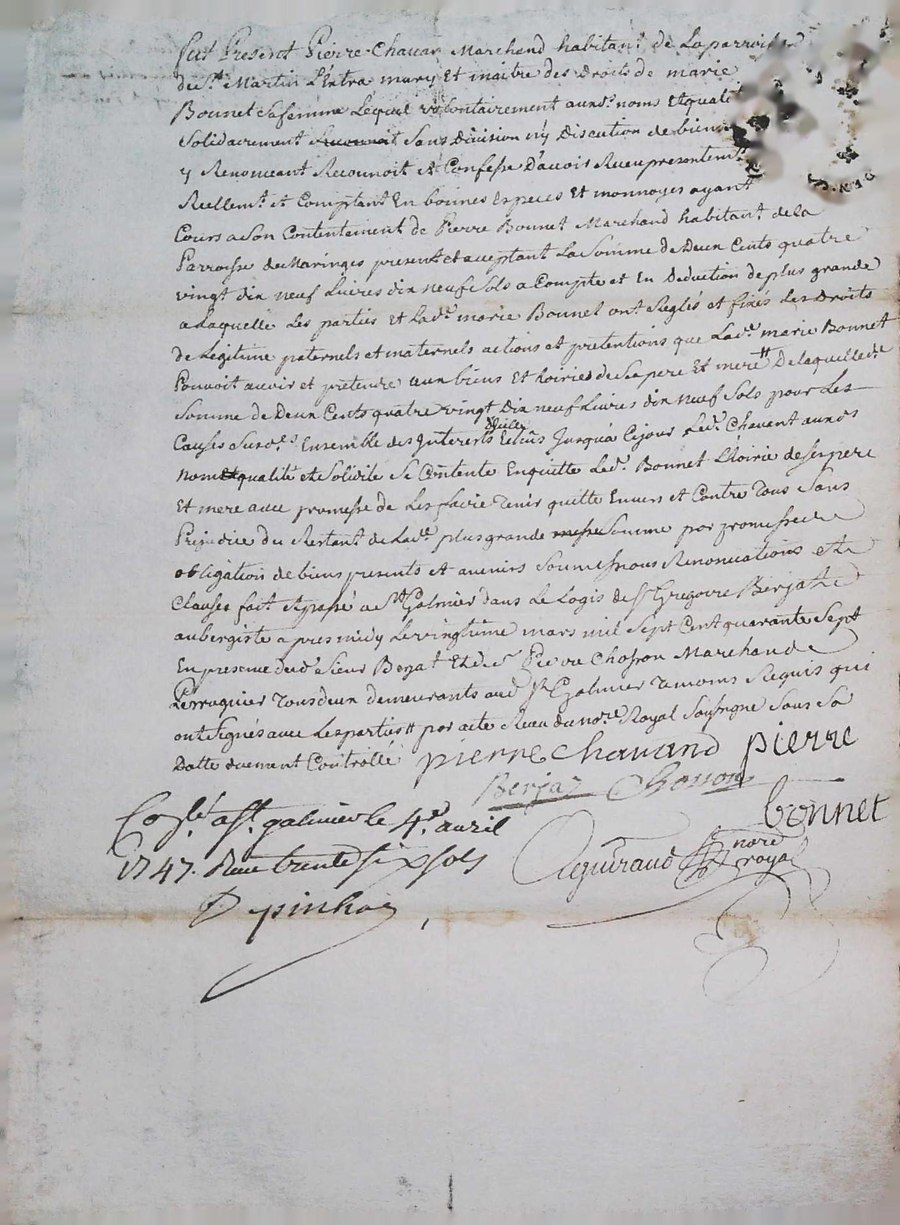 Fut Present Pierre Chavan Marchand habitant de La parroisse
de St Martin L'Extra mury Et maitre des Droits de marie
Bonnet Sa femme Lequel volontairement auxds noms Et qualité
Solidairement Sans Division n'y Discution de biens
y Renonceant Reconnoit Et Confesse D'avoir Receu presentemt
Reellemt Et Comptant En bonnes Especes Et monnoyes ayant
Cours a Son Contentement de Pierre Bonnet Marchand habitant de la
Parroisse de Maringes present et acceptant La Somme de Deux Cents quatre
vingt dix neuf Livres dix neuf Sols a Compte et En Deduction de plus grande
a Laquelle Les parties Et Lade marie Bonnet ont Reglés et fixés Les Droits
de Legitime paternels et maternels actions et pretentions que Lade marie Bonnet
Pouvoit avoir et pretendre aux biens Et hoiries de Ses pere Et mere De laquelle de
Somme de Deux Cents quatre vingt Dix neuf Livres dix neuf Sols pour Les
Causes Susdes Ensemble des Interests d'icelle Echus Jusqu'a Cejour Led. Chavent auxds
noms Et qualité et Solidité Se Contente En quitte Led. Bonnet L'hoirie de Ses pere
Et mere avec promesse de Les faire Tenir quitte Envers et Contre Tous Sans
Prejudice du Restant de Lade plus grande Somme par promesse
obligation de biens presents et avenirs Soumissions Renonciations et
Clauses fait et passé a St Galmier dans Le Logis de Sr Gregoire Berjat
aubergiste apres midy Le vingtieme mars mil Sept Cent quarante Sept
En presence dud. Sieur Berjat Et de Sr Pierre Chosson Marchand
Perruquier Tous deux demeurants aud. St Galmier Temoins Requis qui
ont Signés avec Les parties par acte Receu du nore Royal Soussigne Sous Sa
Datte duement Controllé pierre chavand pierre
Berjat Chosson
bonnet
Conlé a St galmier le 4e avril
1747. Reçu trente six sols
Aguiraud nore
royal
Depinhac